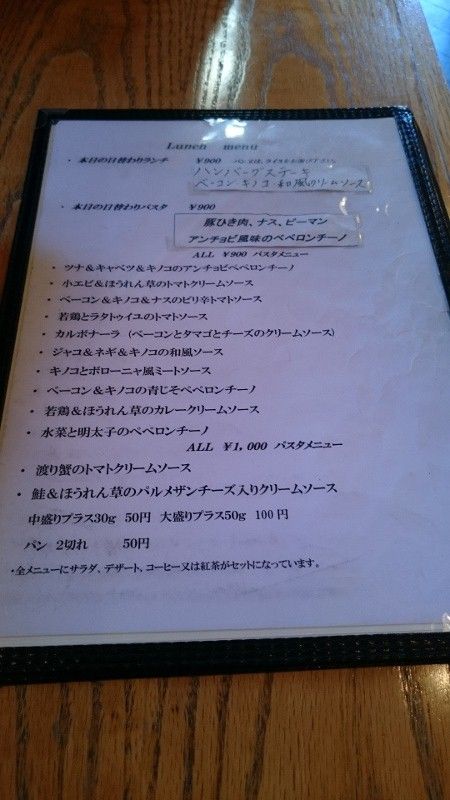 Lunch menu
・本日の日替わりランチ ￥900 パン又は、ライスをお選び下さい。
ハンバーグステーキ
ベーコン・キノコ・和風クリームソース
・本日の日替わりパスタ ￥900
豚ひき肉、ナス、ピーマン
アンチョビ風味のペペロンチーノ
ALL ￥900 パスタメニュー
・ツナ＆キャベツ＆キノコのアンチョビペペロンチーノ
・小エビ＆ほうれん草のトマトクリームソース
・ベーコン＆キノコ＆ナスのピリ辛トマトソース
・若鶏とラタトゥイユのトマトソース
・カルボナーラ（ベーコンとタマゴとチーズのクリームソース）
・ジャコ＆ネギ＆キノコの和風ソース
・キノコとボローニャ風ミートソース
・ベーコン＆キノコの青じそペペロンチーノ
・若鶏＆ほうれん草のカレークリームソース
・水菜と明太子のペペロンチーノ
ALL ￥1,000 パスタメニュー
・渡り蟹のトマトクリームソース
・鮭＆ほうれん草のパルメザンチーズ入りクリームソース
中盛りプラス30g 50円 大盛りプラス50g 100円
パン 2切れ 50円
・全メニューにサラダ、デザート、コーヒー又は紅茶がセットになっています。